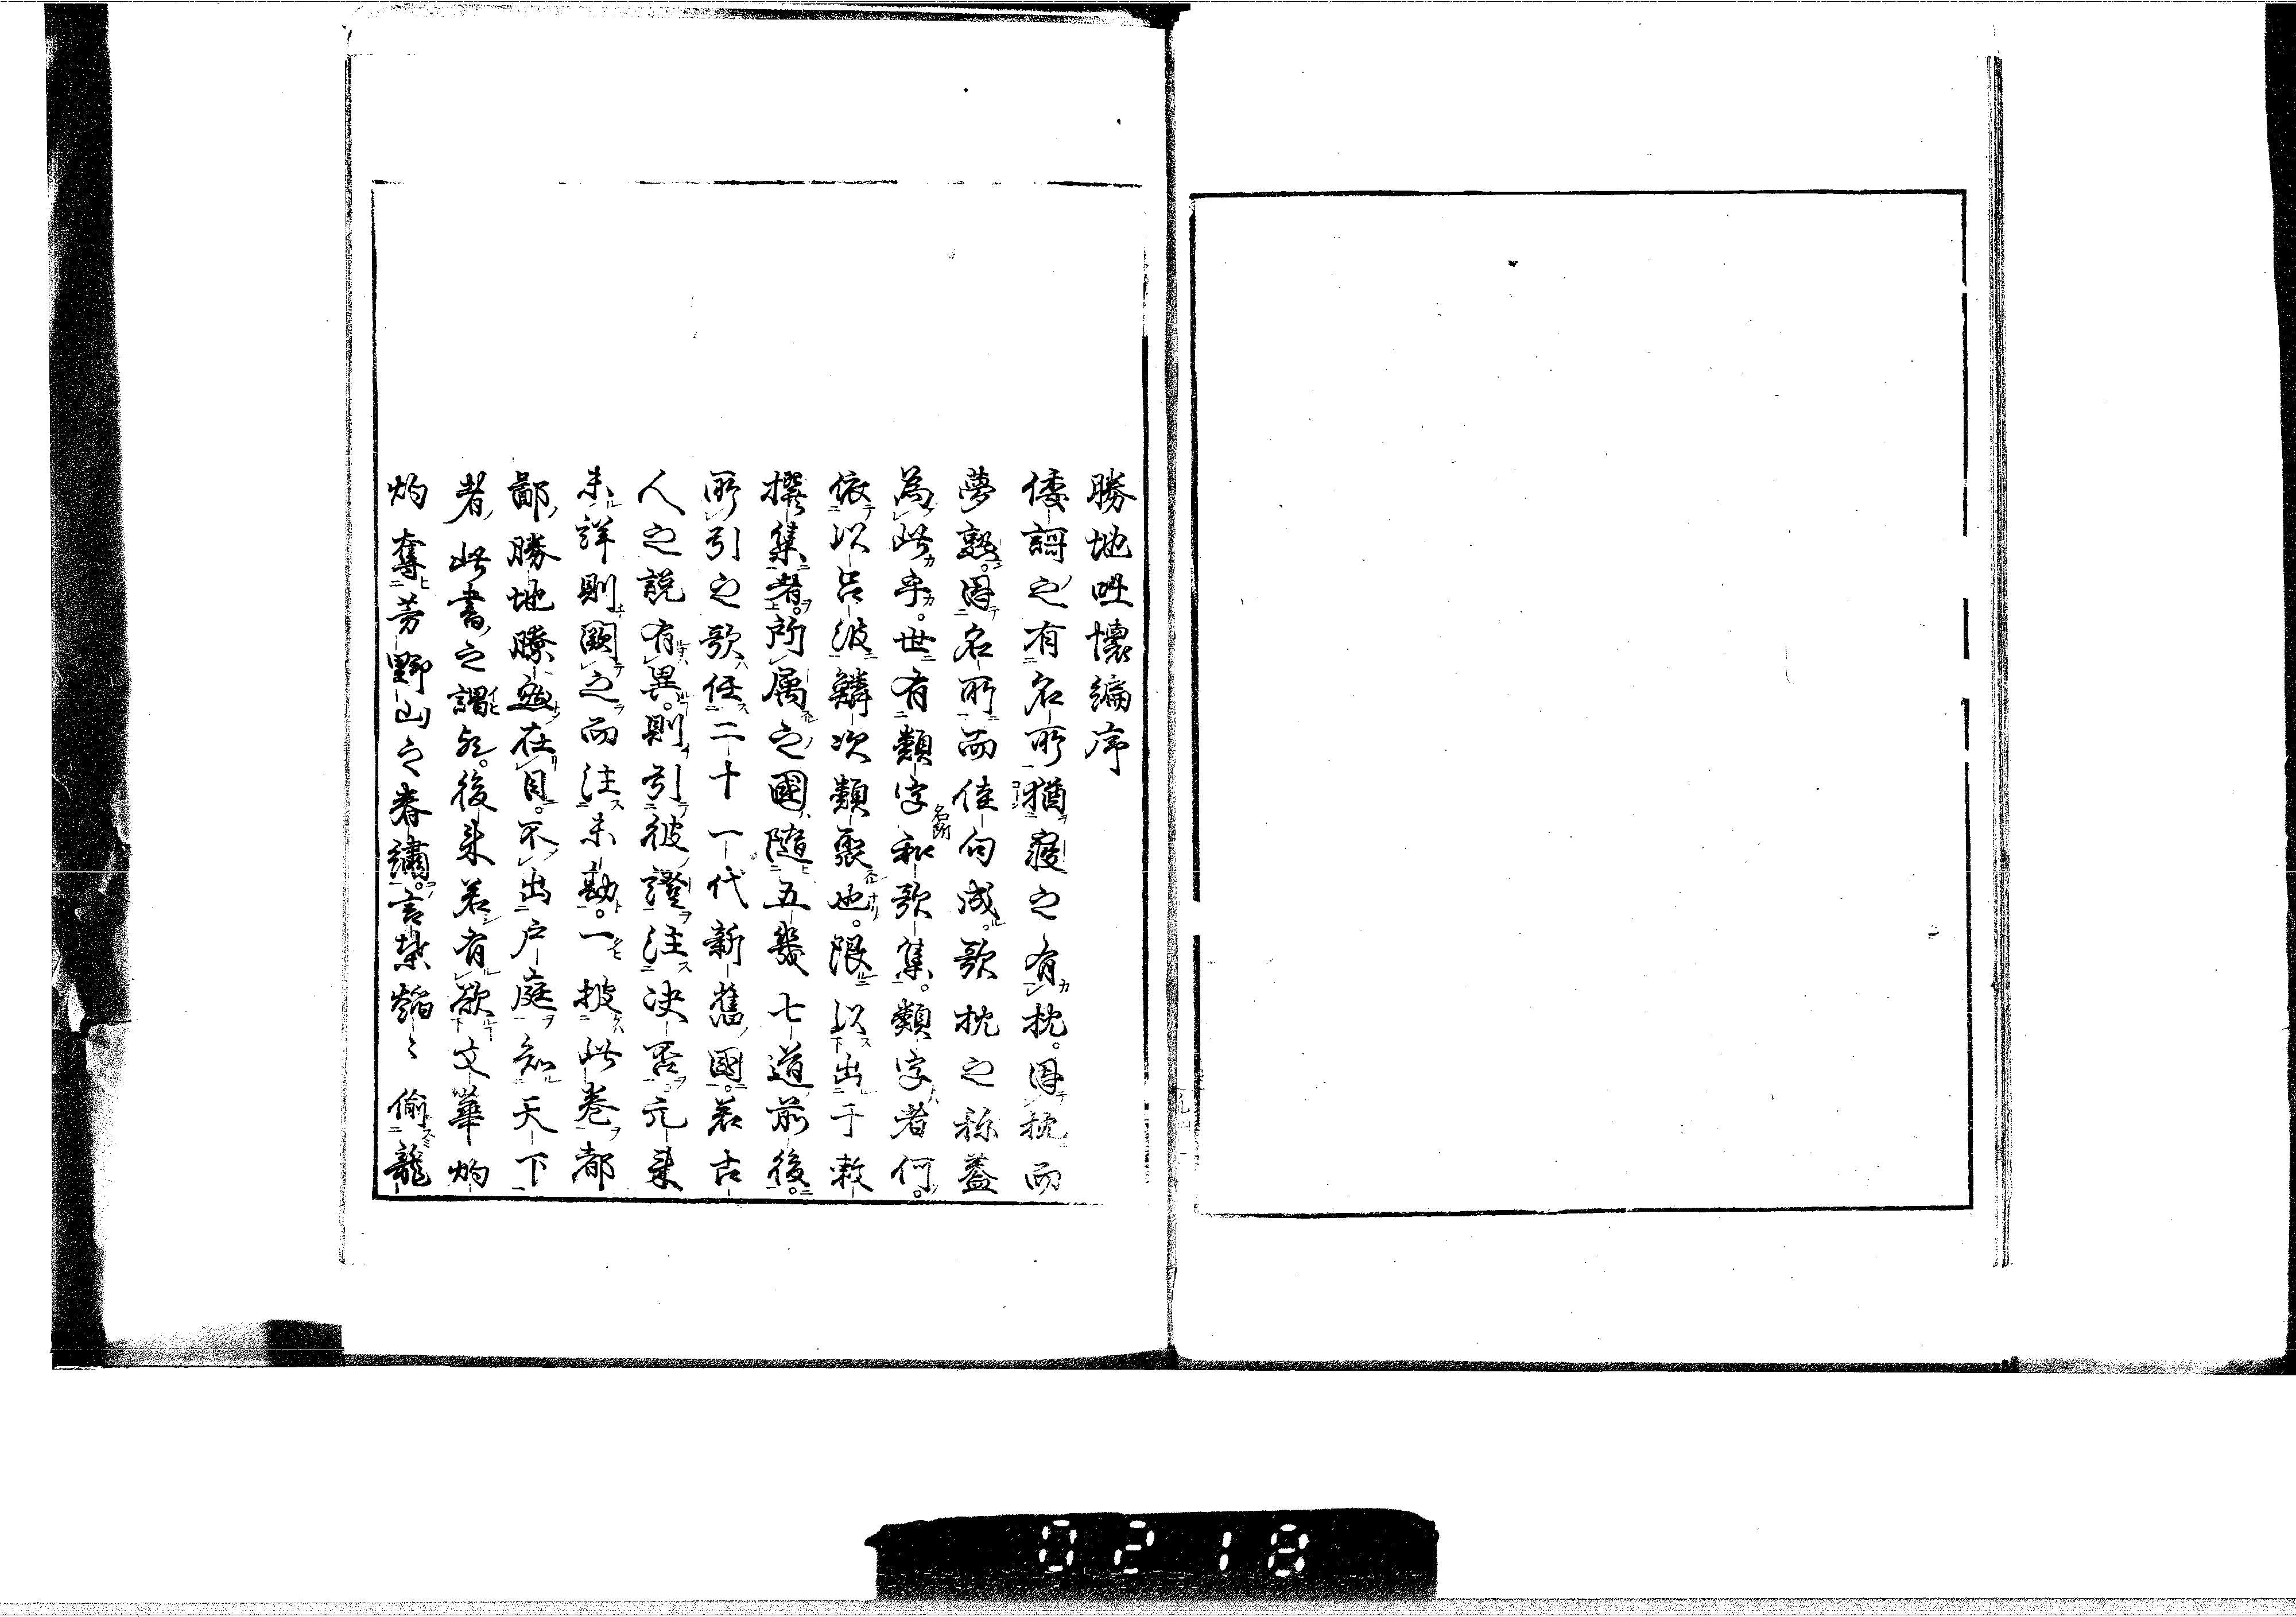 勝地吐懐編序
倭謌之有名所猶寝之有枕因枕而
夢熟因名所而佳句成歌枕之称蓋
為此乎世有類字名所和歌集類字者何
依以呂波鱗次類聚也限以出于敕
撰集者所属之國随五畿七道前後
所引之歌任二十一代新舊國若古
人之説有異則引彼證注決否元来
未詳則闕之而注未勘一披此巻都
鄙勝地瞭然在目不出戸庭知天下
者此書之謂矣後来若有欲文華灼
灼奪芳野山之春繡言葉〻偷龍
0218